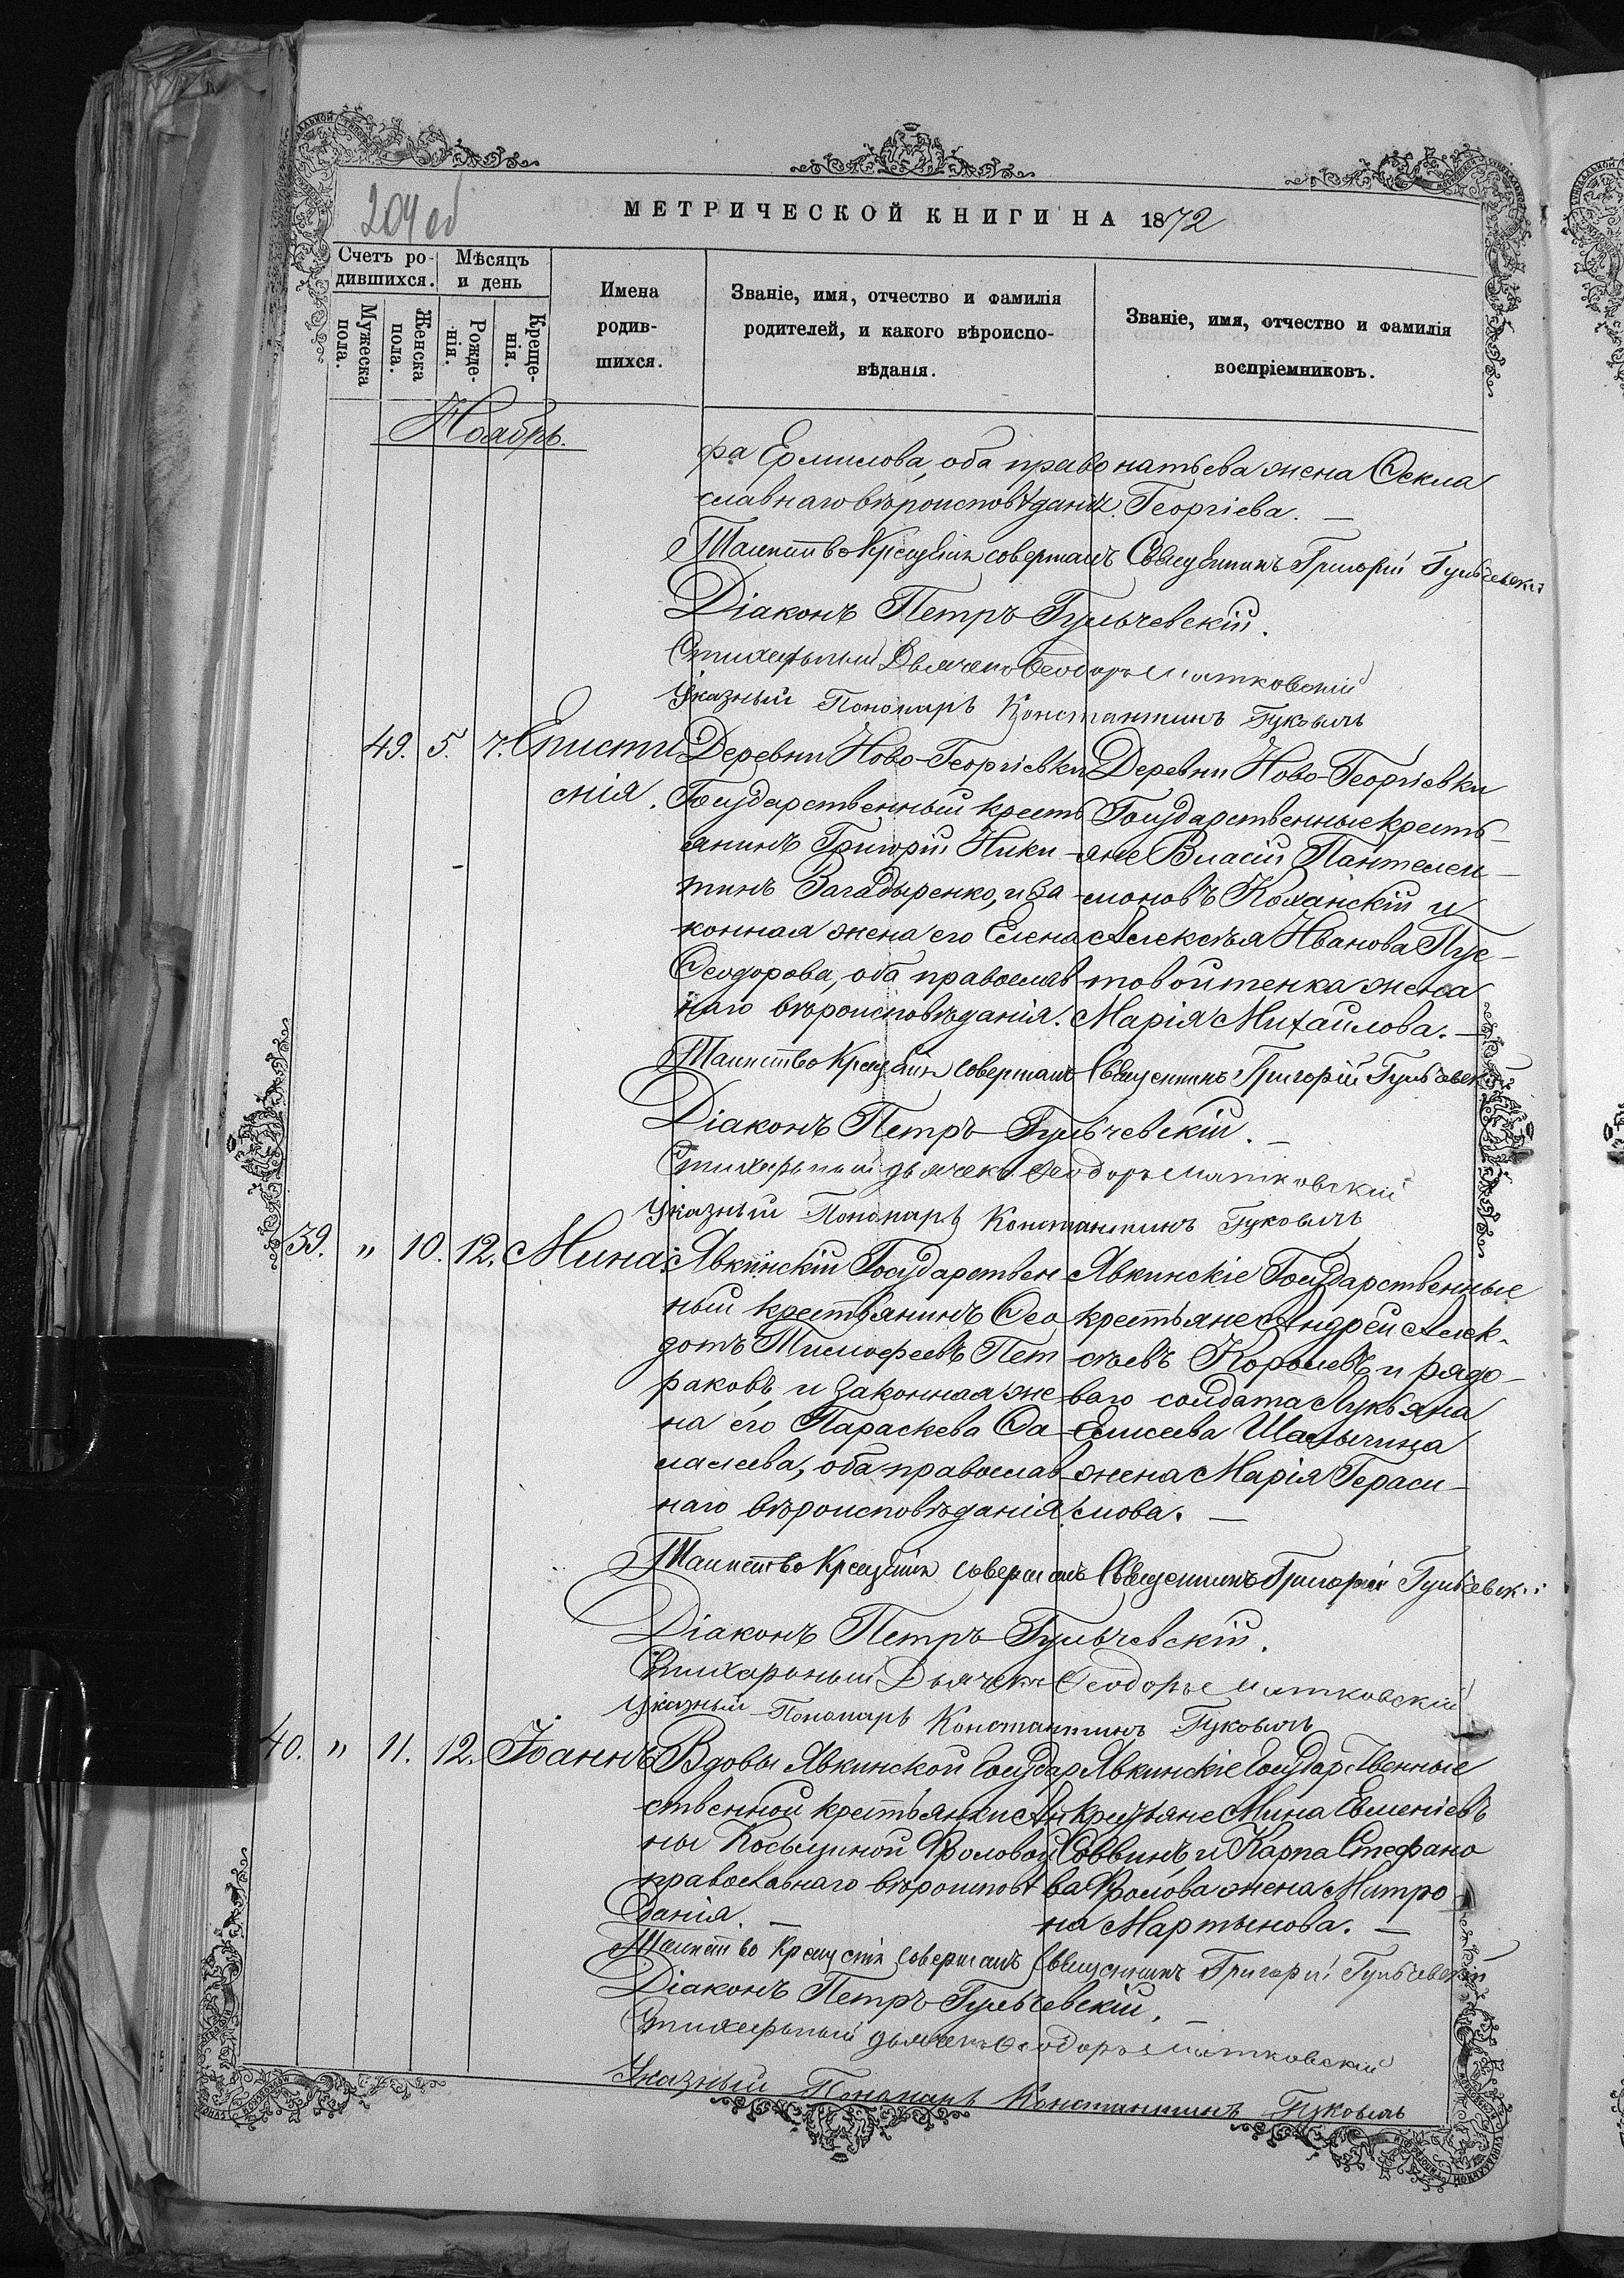 204 об
МЕТРИЧЕСКОЙ КНИГИ НА 1872
Счетъ ро-
дившихся.
Мѣсяцъ
и день
Мужеска
пола.
Женска
пола.
Рожде-
нія.
Креще-
нія.
Имена
родив-
шихся.
Званіе, имя, отчество и фамилія
родителей, и какого вѣроиспо-
вѣданія.
Званіе, имя, отчество и фамилія
воспріемниковъ.
Ноябрь.
фа Ермилова, оба право
славнаго вѣроисповѣданія.
натьева жена Ѳекла
Георгіева. —
Таинство Крещенія совершалъ Священникъ Григорій Гульчевскій
Діаконъ Петръ Гульчевскій.
Стихарный Дьячекъ Ѳеодоръ Матковскій
Указный Пономарь Константинъ Гуковичъ
49. 5. 7. Еписти
мія.
Деревни Ново-Георгіевки
Государственный кресть
янинъ Григорій Ники
тинъ Загадыренко, и за
конная жена его Елена
Ѳеодорова, оба православ
наго вѣроисповѣданія.
Деревни Ново-Георгіевки
Государственные кресть-
яне Власій Пантелеи-
моновъ Коханскій и
Алексѣя Иванова Пус-
товойтенка жена
Марія Михаилова. —
Таинство Крещенія совершалъ Священникъ Григорій Гульчевскій
Діаконъ Петръ Гульчевскій. —
Стихарный дьячекъ Ѳеодоръ Матковскій
Указный Пономарь Константинъ Гуковичъ
39. " 10. 12. Мина.
Явкинскій Государствен
ный крестьянинъ Ѳео
дотъ Тимофеевъ Пет
раковъ, и законная же
на его Параскева Ѳа
лалеева, оба православ
наго вѣроисповѣданія.
Явкинскіе Государственные
крестьяне Андрей Алек-
сѣевъ Королевъ, и рядо-
ваго солдата Лукьяна
Елисеева Шалыгина
жена Марія Гераси-
мова. —
Таинство Крещенія совершалъ Священникъ Григорій Гульчевскій
Діаконъ Петръ Гульчевскій.
Стихарный Дьячекъ Ѳеодоръ Матковскій
Указный Пономарь Константинъ Гуковичъ
40. " 11. 12. Іоаннъ
Вдовы Явкинской Государ
ственной крестьянки Ан
ны Косьминой Фроловой
православнаго вѣроисповѣ
данія. —
Явкинскіе Государственные
крестьяне Мина Евменіевъ
Саввинъ и Карпа Стефано
ва Фролова жена Матро
на Мартынова. —
Таинство Крещенія совершалъ Священникъ Григорій Гульчевскій
Діаконъ Петръ Гульчевскій. —
Стихарный дьячекъ Ѳеодоръ Матковскій
Указный Пономарь Константинъ Гуковичъ